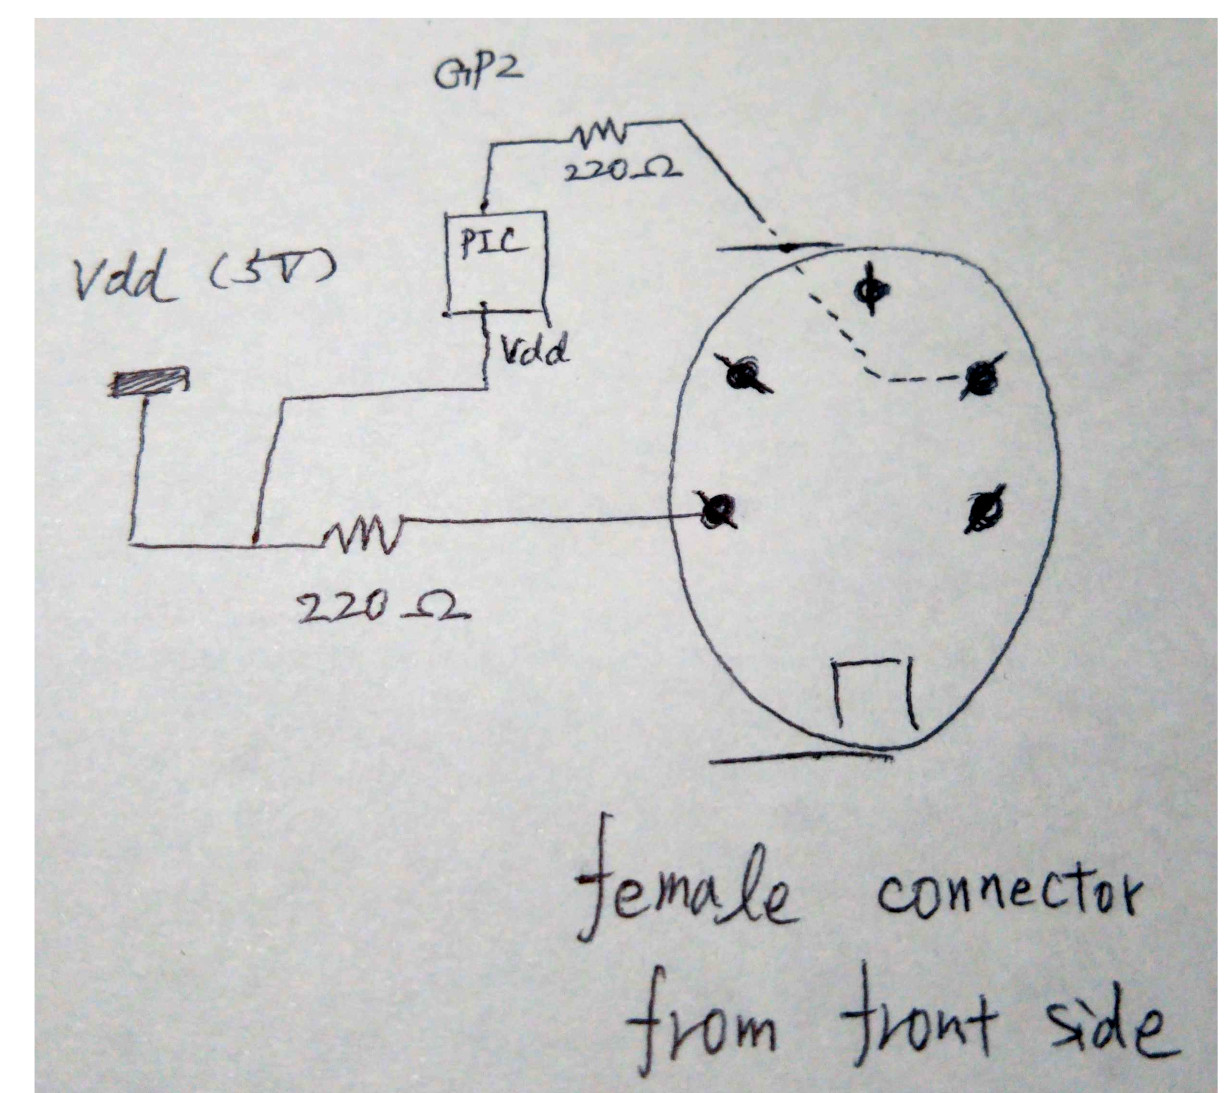 GP2
220Ω
PIC
Vdd (5V)
Vdd
220Ω
female connector
from front side